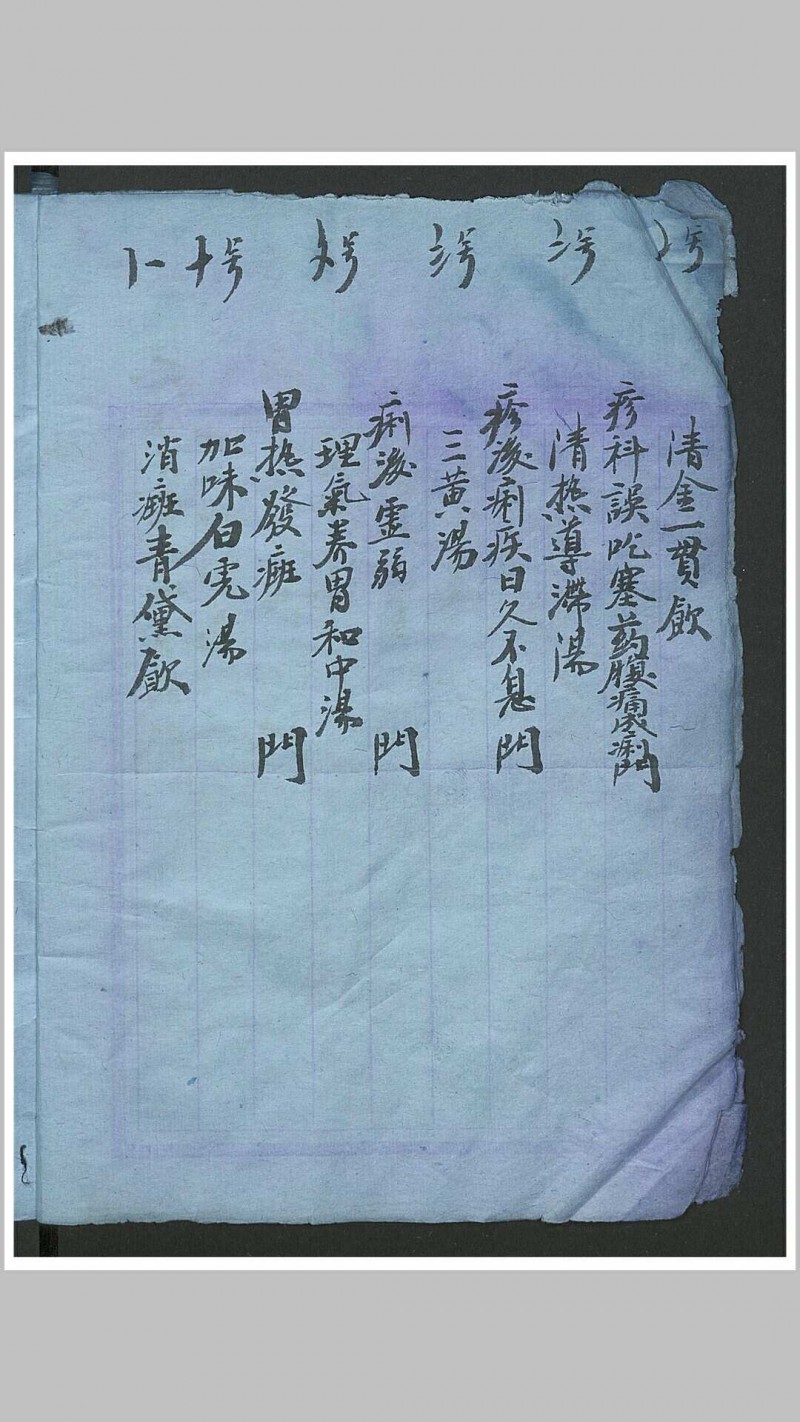 清金一貫飲
疹科誤吃塞药腹痛成痢門
清热導滯湯
疹後痢疾日久不息門
三黄湯
痢後虛弱門
理氣养胃和中湯
胃热發班門
加味白虎湯
消癍青黛飲